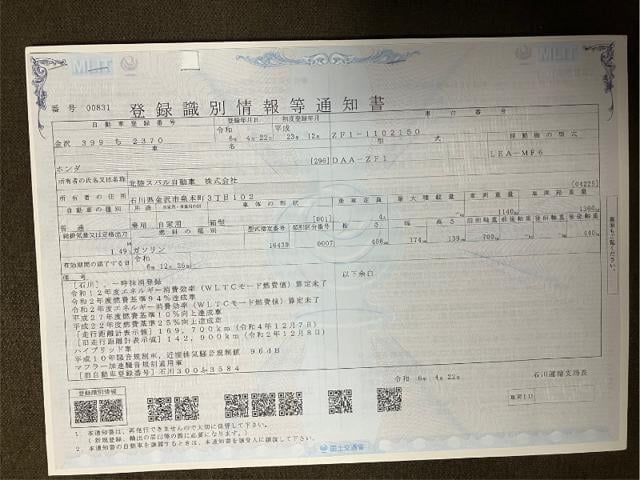 MLIT
番号 00831 登録識別情報等通知書
自動車登録番号 登録年月日 初度登録年月 車台番号
金沢 399 ち 2370 令和 6年 4月 22日 平成 23年 12月 ZF1-1102150
車名 型式 原動機の型式
ホンダ [296] DAA-ZF1 LEA-MF6
所有者の氏名又は名称 北陸スバル自動車 株式会社
所有者の住所 石川県金沢市泉本町3丁目102 [04225]
自動車の種別 用途 車体の形状 乗車定員 最大積載量 車両重量 車両総重量
普通 乗用 自家用 箱型 [001] 4人 1140kg 1360kg
総排気量又は定格出力 燃料の種類 型式指定番号 類別区分番号 長さ 幅 高さ 前前軸重 前後軸重 後前軸重 後後軸重
1.49 ガソリン 16439 0007 408cm 174cm 139cm 700kg 440kg
有効期間の満了する日 令和 6年 12月 25日
備考
[石川] 一時抹消登録 以下余白
令和12年度エネルギー消費効率(WLTCモード燃費値)算定未了
令和2年度燃費基準94%達成車
令和2年度エネルギー消費効率(WLTCモード燃費値)算定未了
平成27年度燃費基準10%向上達成車
平成22年度燃費基準25%向上達成車
[走行距離計表示値]169,700km(令和4年12月7日)
[旧走行距離計表示値]142,900km(令和2年12月8日)
ハイブリッド車
平成10年騒音規制車、近接排気騒音規制値 96dB
マフラー加速騒音規制適用車
[旧自動車登録番号]石川300ふ3584
令和 6年 4月 22日 石川運輸支局長
登録識別情報
1. 本通知書は、再発行できませんので大切に保管して下さい。
(新規登録、輸出の届出等の際に必要になります。)
2. 本通知書の自動車を譲渡するときは、本通知書を譲受人に譲渡して下さい。
国土交通省